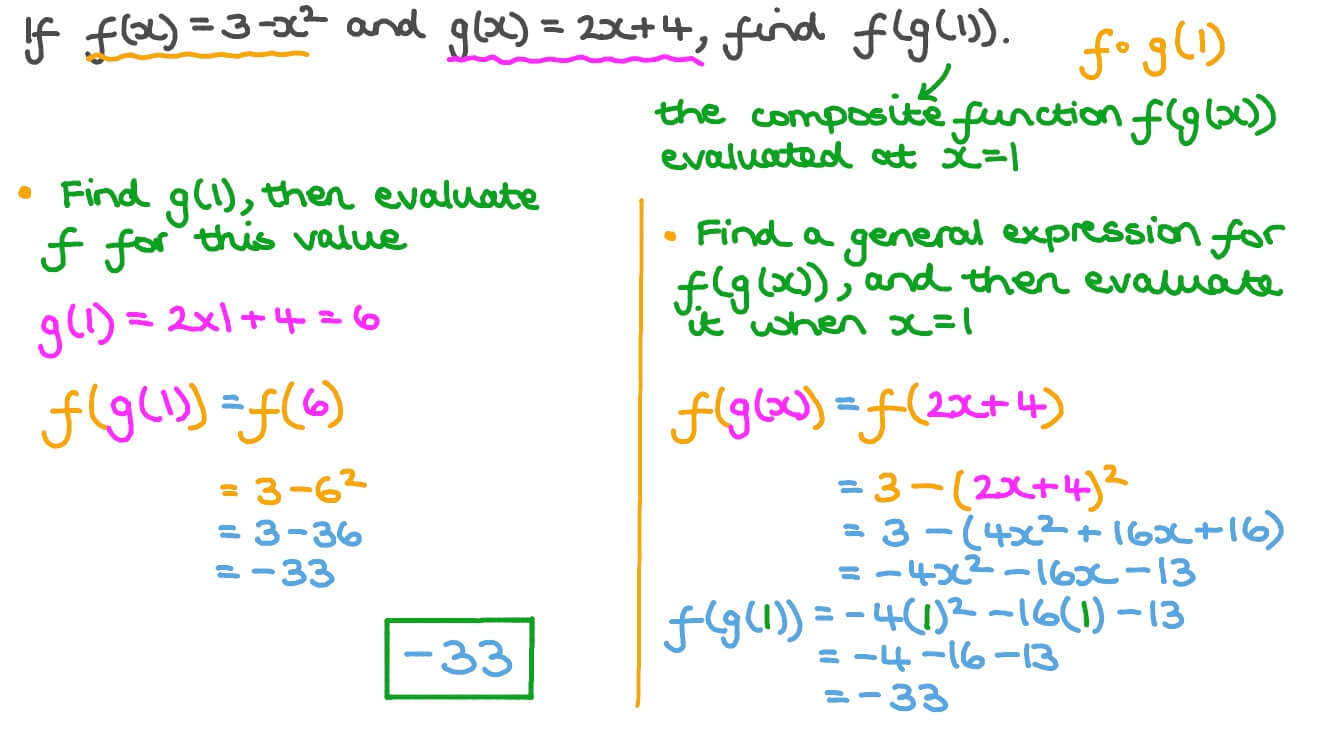 If f(x) = 3-x² and g(x) = 2x+4, find f(g(1)).
f∘g(1)
the composite function f(g(x))
evaluated at x=1
• Find g(1), then evaluate
f for this value
g(1) = 2x1 + 4 = 6
f(g(1)) = f(6)
= 3 - 6²
= 3 - 36
= -33
-33
• Find a general expression for
f(g(x)), and then evaluate
it when x=1
f(g(x)) = f(2x+4)
= 3 - (2x+4)²
= 3 - (4x² + 16x + 16)
= -4x² - 16x - 13
f(g(1)) = -4(1)² - 16(1) - 13
= -4 - 16 - 13
= -33